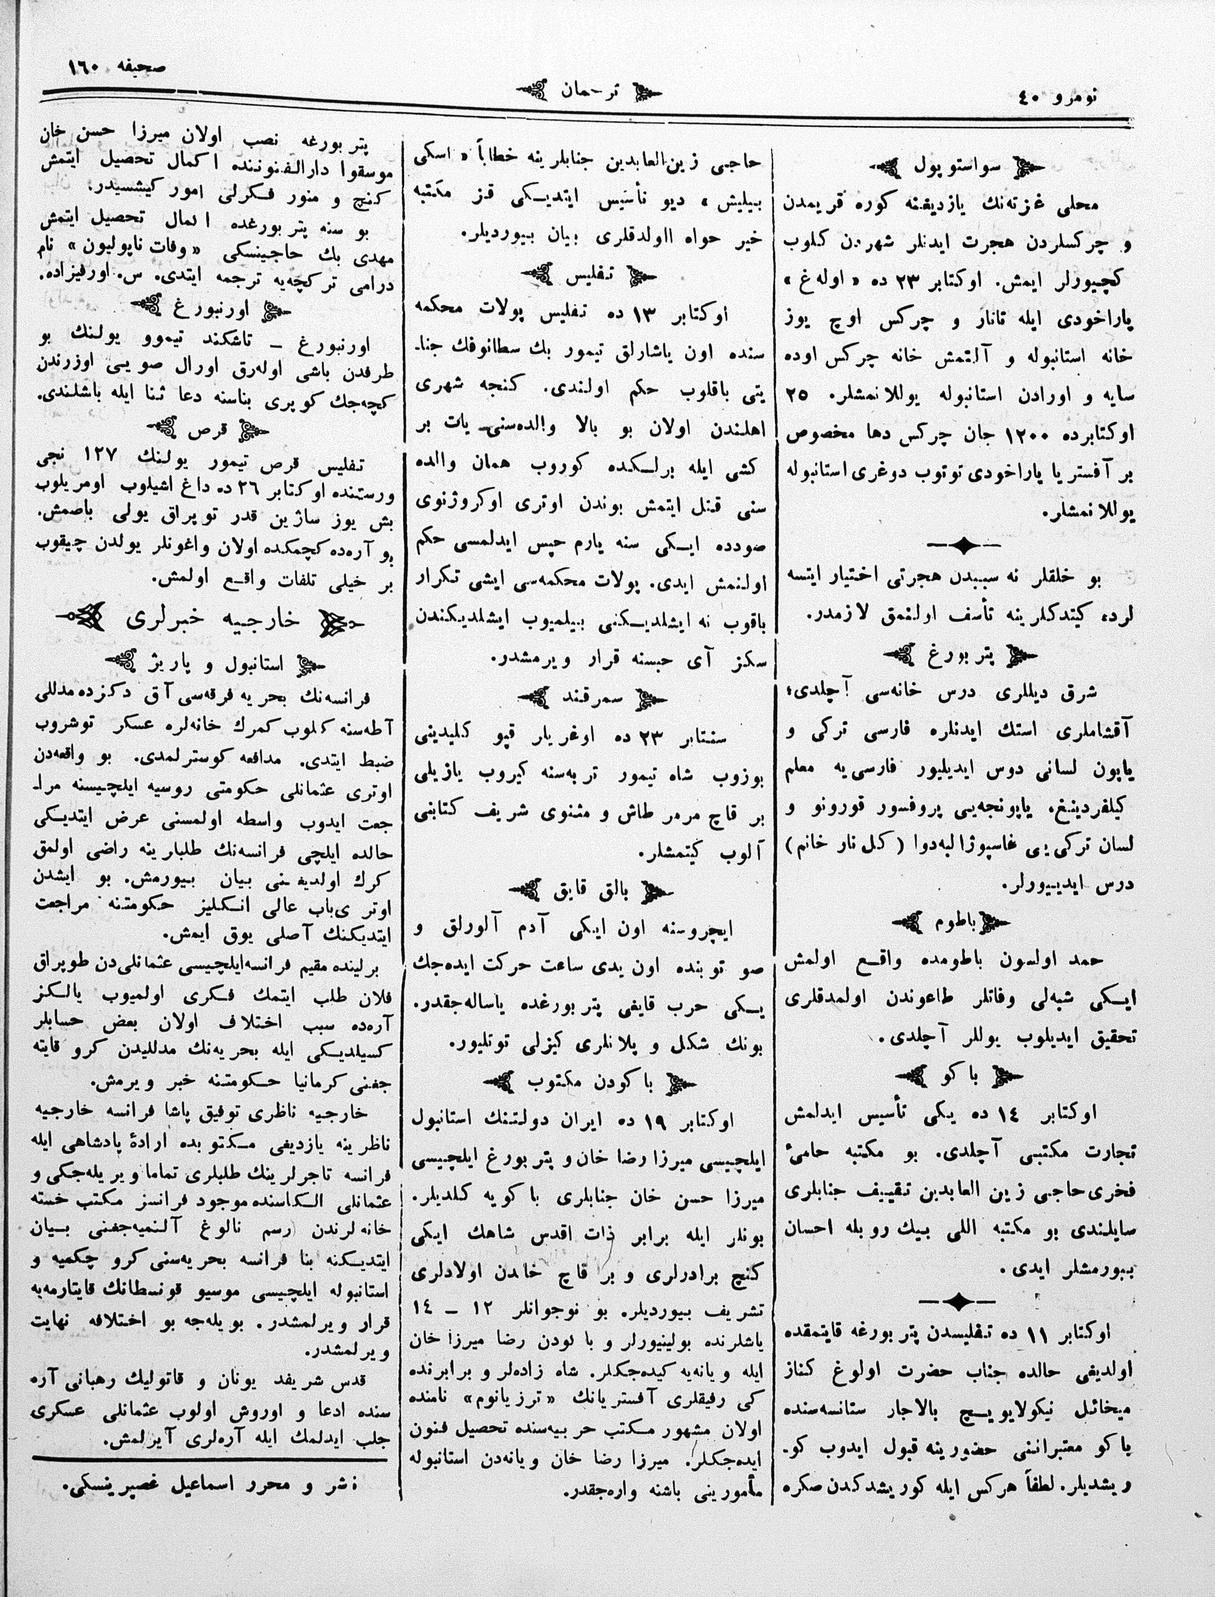 نومرو ٤٠
ترجمان
صحیفه ١٦٠
سواستوپول
محلی غزته‌نك یازدیغنه كوره قریمدن
و چركسلردن هجرت ایدنلر شهردن كلوب
كچیورلر ایمش. اوكتابر ٢٣ ده «اوله‌غ»
پاراخودی ایله تاتار و چركس اوچ یوز
خانه استانبوله و آلتمش خانه چركس اوده
سایه و اورادن استانبوله یوللانمشلر. ٢٥
اوكتابرده ١٢٠٠ جان چركس دها مخصوص
بر آفستریا پاراخودی توتوب دوغری استانبوله
یوللانمشلر.
بو خلقلر نه سببدن هجرتی اختیار ایتسه
لرده كیتدكلرینه تأسف اولنمق لازمدر.
پتربورغ
شرق دیللری درس خانه‌سی آچلدی؛
آقشاملری استك ایدنلره فارسی تركی و
یاپون لسانی دوس ایدیلیور فارسی‌یه معلم
كیلفردینغ، یاپونجه‌یی پروفسور قورونو و
لسان تركی‌یی غاسپوژا لبه‌دوا (كل نار خانم)
درس ایدییورلر.
باطوم
حمد اولسون باطومده واقع اولمش
ایكی شبه‌لی وفاتلر طاعوندن اولمدقلری
تحقیق ایدیلوب یوللر آچلدی.
باكو
اوكتابر ١٤ ده یكی تأسیس ایدلمش
تجارت مكتبی آچلدی. بو مكتبه حامیٔ
فخری حاجی زین العابدین تقییف جنابلری
سایلندی بو مكتبه اللی بیك روبله احسان
بیورمشلر ایدی.
اوكتابر ١١ ده تفلیسدن پتربورغه قایتمقده
اولدیغی حالده جناب حضرت اولوغ كناز
میخائل نیكولایویچ بالاجار ستانسه‌سنده
پاكو معتبراننی حضورینه قبول ایدوب كو-
ریشدیلر. لطفاً هركس ایله كوریشدكدن صكره
حاجی زین‌العابدین جنابلرینه خطاباً «اسكی
بیلیش» دیو تأسیس ایتدیكی قز مكتبه
خیر خواه ااولدقلری بیان بیوردیلر.
تفلیس
اوكتابر ١٣ ده تفلیس پولات محكمه
سنده اون یاشارلق تیمور بك سطانوفك جنا-
یتی باقلوب حكم اولندی. كنجه شهری
اهلندن اولان بو بالا والده‌سنی یات بر
كشی ایله برلكده كوروب همان والده
سنی قتل ایتمش بوندن اوتری اوكروژنوی
صودده ایكی سنه یارم حپس ایدلمسی حكم
اولنمش ایدی. پولات محكمه‌سی ایشی تكرار
باقوب نه ایشلدیكنی بیلمیوب ایشلدیكندن
سكز آی حبسنه قرار ویرمشدر.
سمرقند
سنتابر ٢٣ ده اوغریار قپو كلیدینی
بوزوب شاه تیمور تربه‌سنه كیروب یازیلی
بر قاچ مرمر طاش و مثنوی شریف كتابنی
آلوب كیتمشلر.
بالق قایق
ایچروسنه اون ایكی آدم آلورلق و
صو توبنده اون یدی ساعت حركت ایده‌جك
یكی حرب قایفی پتربورغده یاساله‌جقدر.
بونك شكل و پلانلری كیزلی توتلیور.
باكودن مكتوب
اوكتابر ١٩ ده ایران دولتنك استانبول
ایلچیسی میرزا رضا خان و پتربورغ ایلچیسی
میرزا حسن خان جنابلری باكویه كلدیلر.
بونلر ایله برابر ذات اقدس شاهك ایكی
كنج برادرلری و بر قاچ خادن اولادلری
تشریف بیوردیلر. بو نوجوانلر ١٢ – ١٤
یاشلرنده بولینیورلر و باكودن رضا میرزا خان
ایله ویانه‌یه كیده‌جكلر. شاه زاده‌لر و برابرنده
كی رفیقلری آفستریانك «ترزیانوم» نامنده
اولان مشهور مكتب حربیه‌سنده تحصیل فنون
ایده‌جكلر. میرزا رضا خان ویانه‌دن استانبوله
مأمورینی باشنه واره‌جقدر.
پتربورغه نصب اولان میرزا حسن خان
موسقوا دارالفنوننده اكمال تحصیل ایتمش
كنج و منور فكرلی امور كیشسیدر.
بو سنه پتربورغده اكمال تحصیل ایتمش
مهدی بك حاجینسكی «وفات ناپولیون» نام
درامی تركچه‌یه ترجمه ایتدی. س. اورفیزاده.
اورنبورغ
اورنبورغ – تاشكند تیموو یولنك بو
طرفدن باشی اوله‌رق اورال صویی اوزرندن
كچه‌جك كوپری بناسنه دعا ثنا ایله باشلندی.
قرص
تفلیس قرص تیمور یولنك ١٢٧ نجی
ورستنده اوكتابر ٢٦ ده داغ اشیلوب اومریلوب
بش یوز ساژین قدر توپراق یولی باصمش.
بو آره‌ده كچمكده اولان واغونلر یولدن چیقوب
بر خیلی تلفات واقع اولمش.
خارجیه خبرلری
استانبول و پاریژ
فرانسه‌نك بحریه فرقه‌سی آق دكزده مدللی
آطه‌سنه كلوب كمرك خانه‌لره عسكر توشروب
ضبط ایتدی. مدافعه كوسترلمدی. بو واقعه‌دن
اوتری عثمانلی حكومتی روسیه ایلچیسنه مرا-
جعت ایدوب واسطه اولمسنی عرض ایتدیكی
حالده ایلچی فرانسه‌نك طلبارینه راضی اولمق
كرك اولدیغنی بیان بیورمش. بو ایشدن
اوتری باب عالی انكلیز حكومتنه مراجعت
ایتدیكنك آصلی یوق ایمش.
برلینده مقیم فرانسه ایلچیسی عثمانلی‌دن طوپراق
فلان طلب ایتمك فكری اولمیوب یالكز
آره‌ده سبب اختلاف اولان بعض حسابلر
كسیلدیكی ایله بحریه‌نك مدللیدن كرو قایته
جغنی كرمانیا حكومتنه خبر ویرمش.
خارجیه ناظری توفیق پاشا فرانسه خارجیه
ناظرینه یازدیغی مكتوبده ارادهٔ پادشاهی ایله
فرانسه تاجرلرینك طلبلری تماما ویریله‌جكی و
عثمانلی الكاسنده موجود فرانسز مكتب خسته
خانه‌لرندن رسم نالوغ آلنمیه‌جغنی بیان
ایتدیكنه بنا فرانسه بحریه‌سنی كرو چكمیه و
استانبوله ایلچیسی موسیو قونسطانك قایتارمه‌یه
قرار ویرلمشدر. بویله‌جه بو اختلافه نهایت
ویرلمشدر.
قدس شریفد یونان و قاتولیك رهبانی آره
سنده ادعا و اوروش اولوب عثمانلی عسكری
جلب ایدلمك ایله آره‌لری آیرلمش.
ناشر و محرر اسماعیل غصپرینسكی.